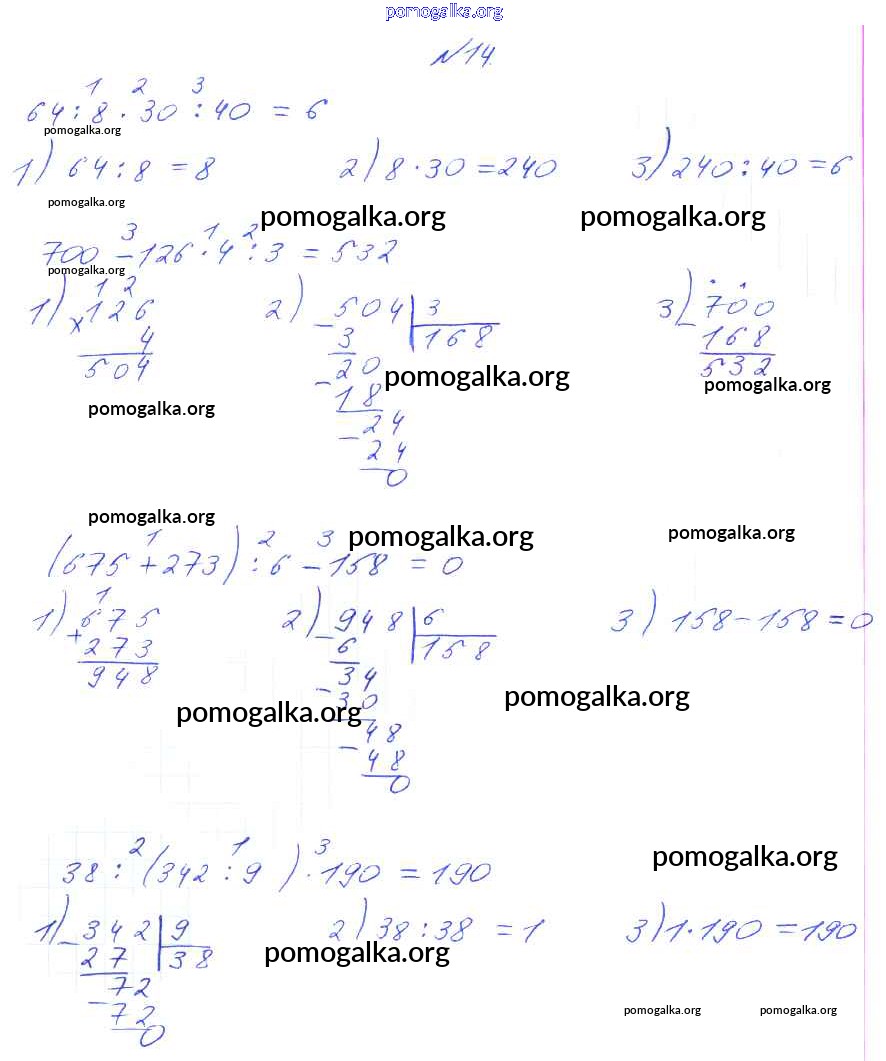 pomogalka.org
N14.
1 2 3
64 : 8 · 30 : 40 = 6
pomogalka.org
1) 64 : 8 = 8 2) 8 · 30 = 240 3) 240 : 40 = 6
pomogalka.org
pomogalka.org pomogalka.org
3 1 2
700 - 126 · 4 : 3 = 532
pomogalka.org
1 2
1) × 126 2) - 504 | 3 3) - 700
4 3 168 168
504 20 532
- 18 pomogalka.org pomogalka.org
pomogalka.org 24
- 24
0
pomogalka.org
1 2 3 pomogalka.org pomogalka.org
(675 + 273) : 6 - 158 = 0
1
1) + 675 2) - 948 | 6 3) 158 - 158 = 0
273 6 158
948 34
- 30 pomogalka.org
pomogalka.org 48
- 48
0
2 1 3
pomogalka.org
38 : (342 : 9) · 190 = 190
1) - 342 | 9 2) 38 : 38 = 1 3) 1 · 190 = 190
27 38 pomogalka.org
72
- 72 pomogalka.org pomogalka.org
0